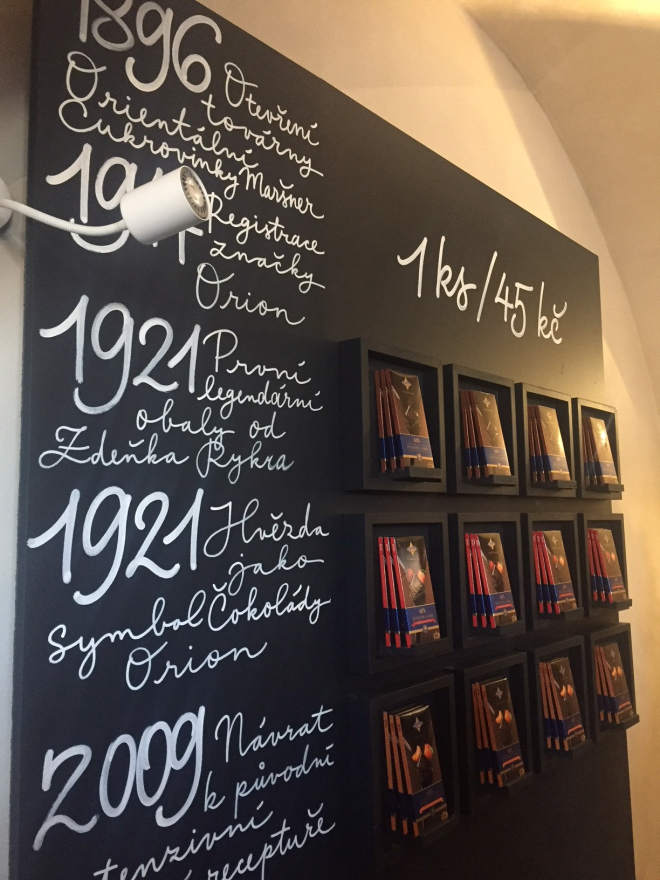 1896 Otevření
továrny
Orientální
Cukrovinky Maršner
Registrace
značky
Orion
1921 První
legendární
obaly od
Zdeňka Rykra
1921 Hvězda
jako
symbol Čokolády
Orion
2009 Návrat
k původní
tenzivní
recepturě
1 ks/45 kč